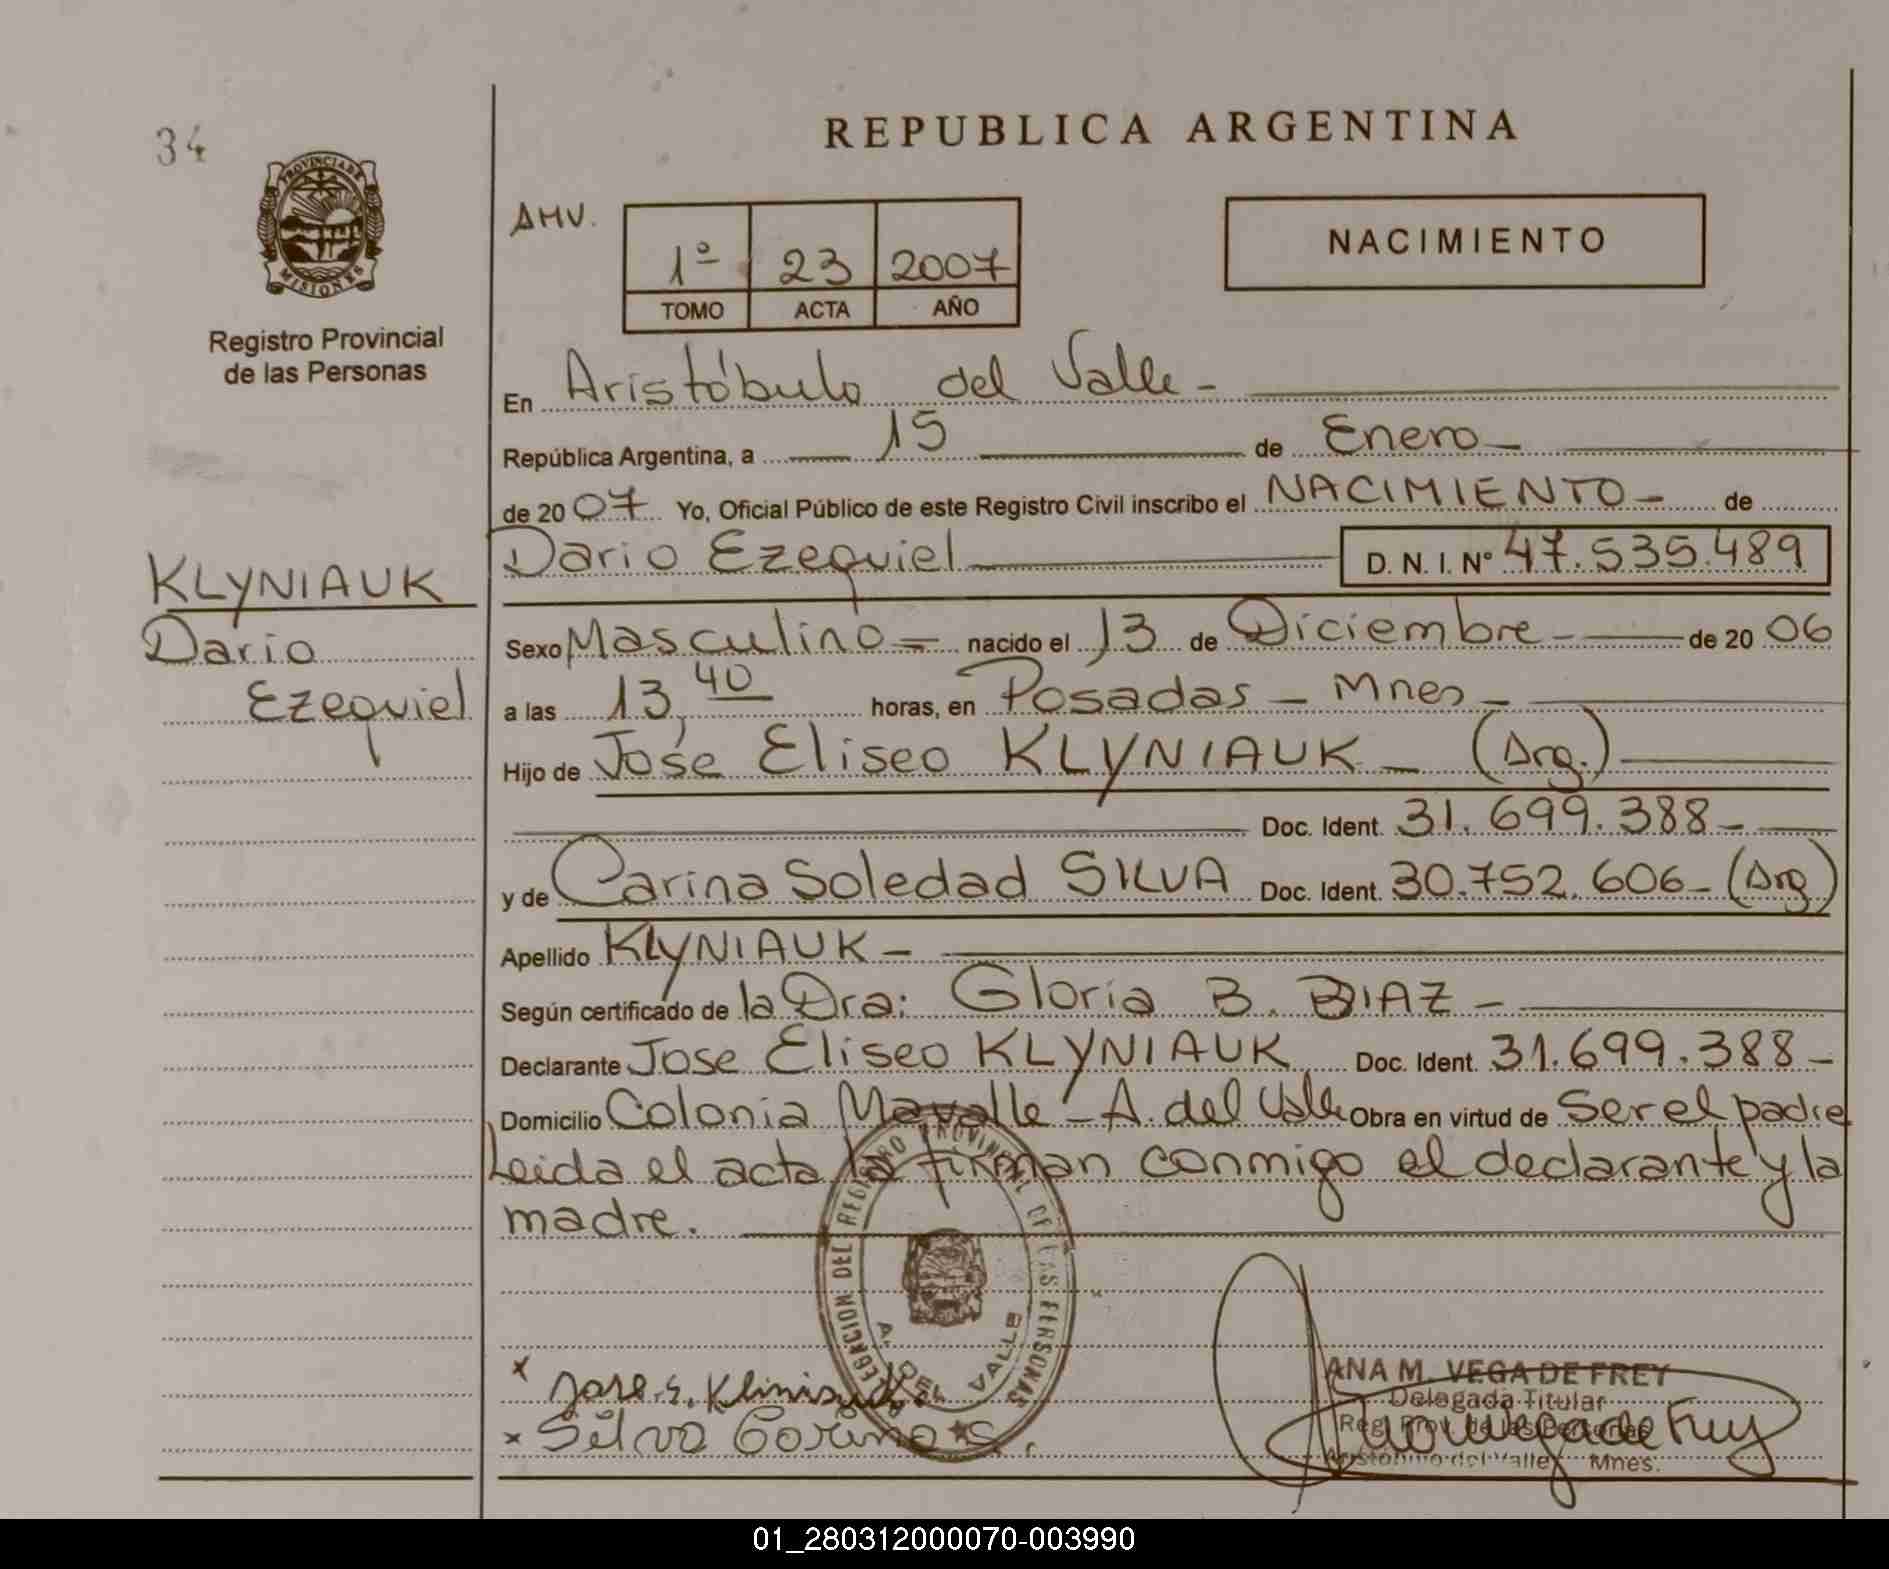 34
REPUBLICA ARGENTINA
PROVINCIA DE
MISIONES
Registro Provincial
de las Personas
AMV.
1º 23 2007
TOMO ACTA AÑO
NACIMIENTO
En Aristóbulo del Valle -
República Argentina, a 15 de Enero -
de 2007 Yo, Oficial Público de este Registro Civil inscribo el NACIMIENTO - de
Dario Ezequiel D. N. I. Nº 47.535.489
KLYNIAUK
Dario
Ezequiel
Sexo Masculino = nacido el 13 de Diciembre - de 2006
a las 13,40 horas, en Posadas - Mnes -
Hijo de José Eliseo KLYNIAUK - (Arg.)
Doc. Ident. 31.699.388 -
y de Carina Soledad SILVA Doc. Ident. 30.752.606 - (Arg)
Apellido KLYNIAUK -
Según certificado de la Dra: Gloria B. DIAZ -
Declarante Jose Eliseo KLYNIAUK Doc. Ident. 31.699.388 -
Domicilio Colonia Mavalle - A. del Valle Obra en virtud de Ser el padre
Leida el acta la firman conmigo el declarante y la
madre.
DELEGACION DEL REGISTRO PROVINCIAL DE LAS PERSONAS
A. DEL VALLE
x Jose. E.
x Silva Corina S.
ANA M. VEGA DE FREY
Delegada Titular
Reg. Prov. de las Personas
Aristóbulo del Valle Mnes.
01_280312000070-003990